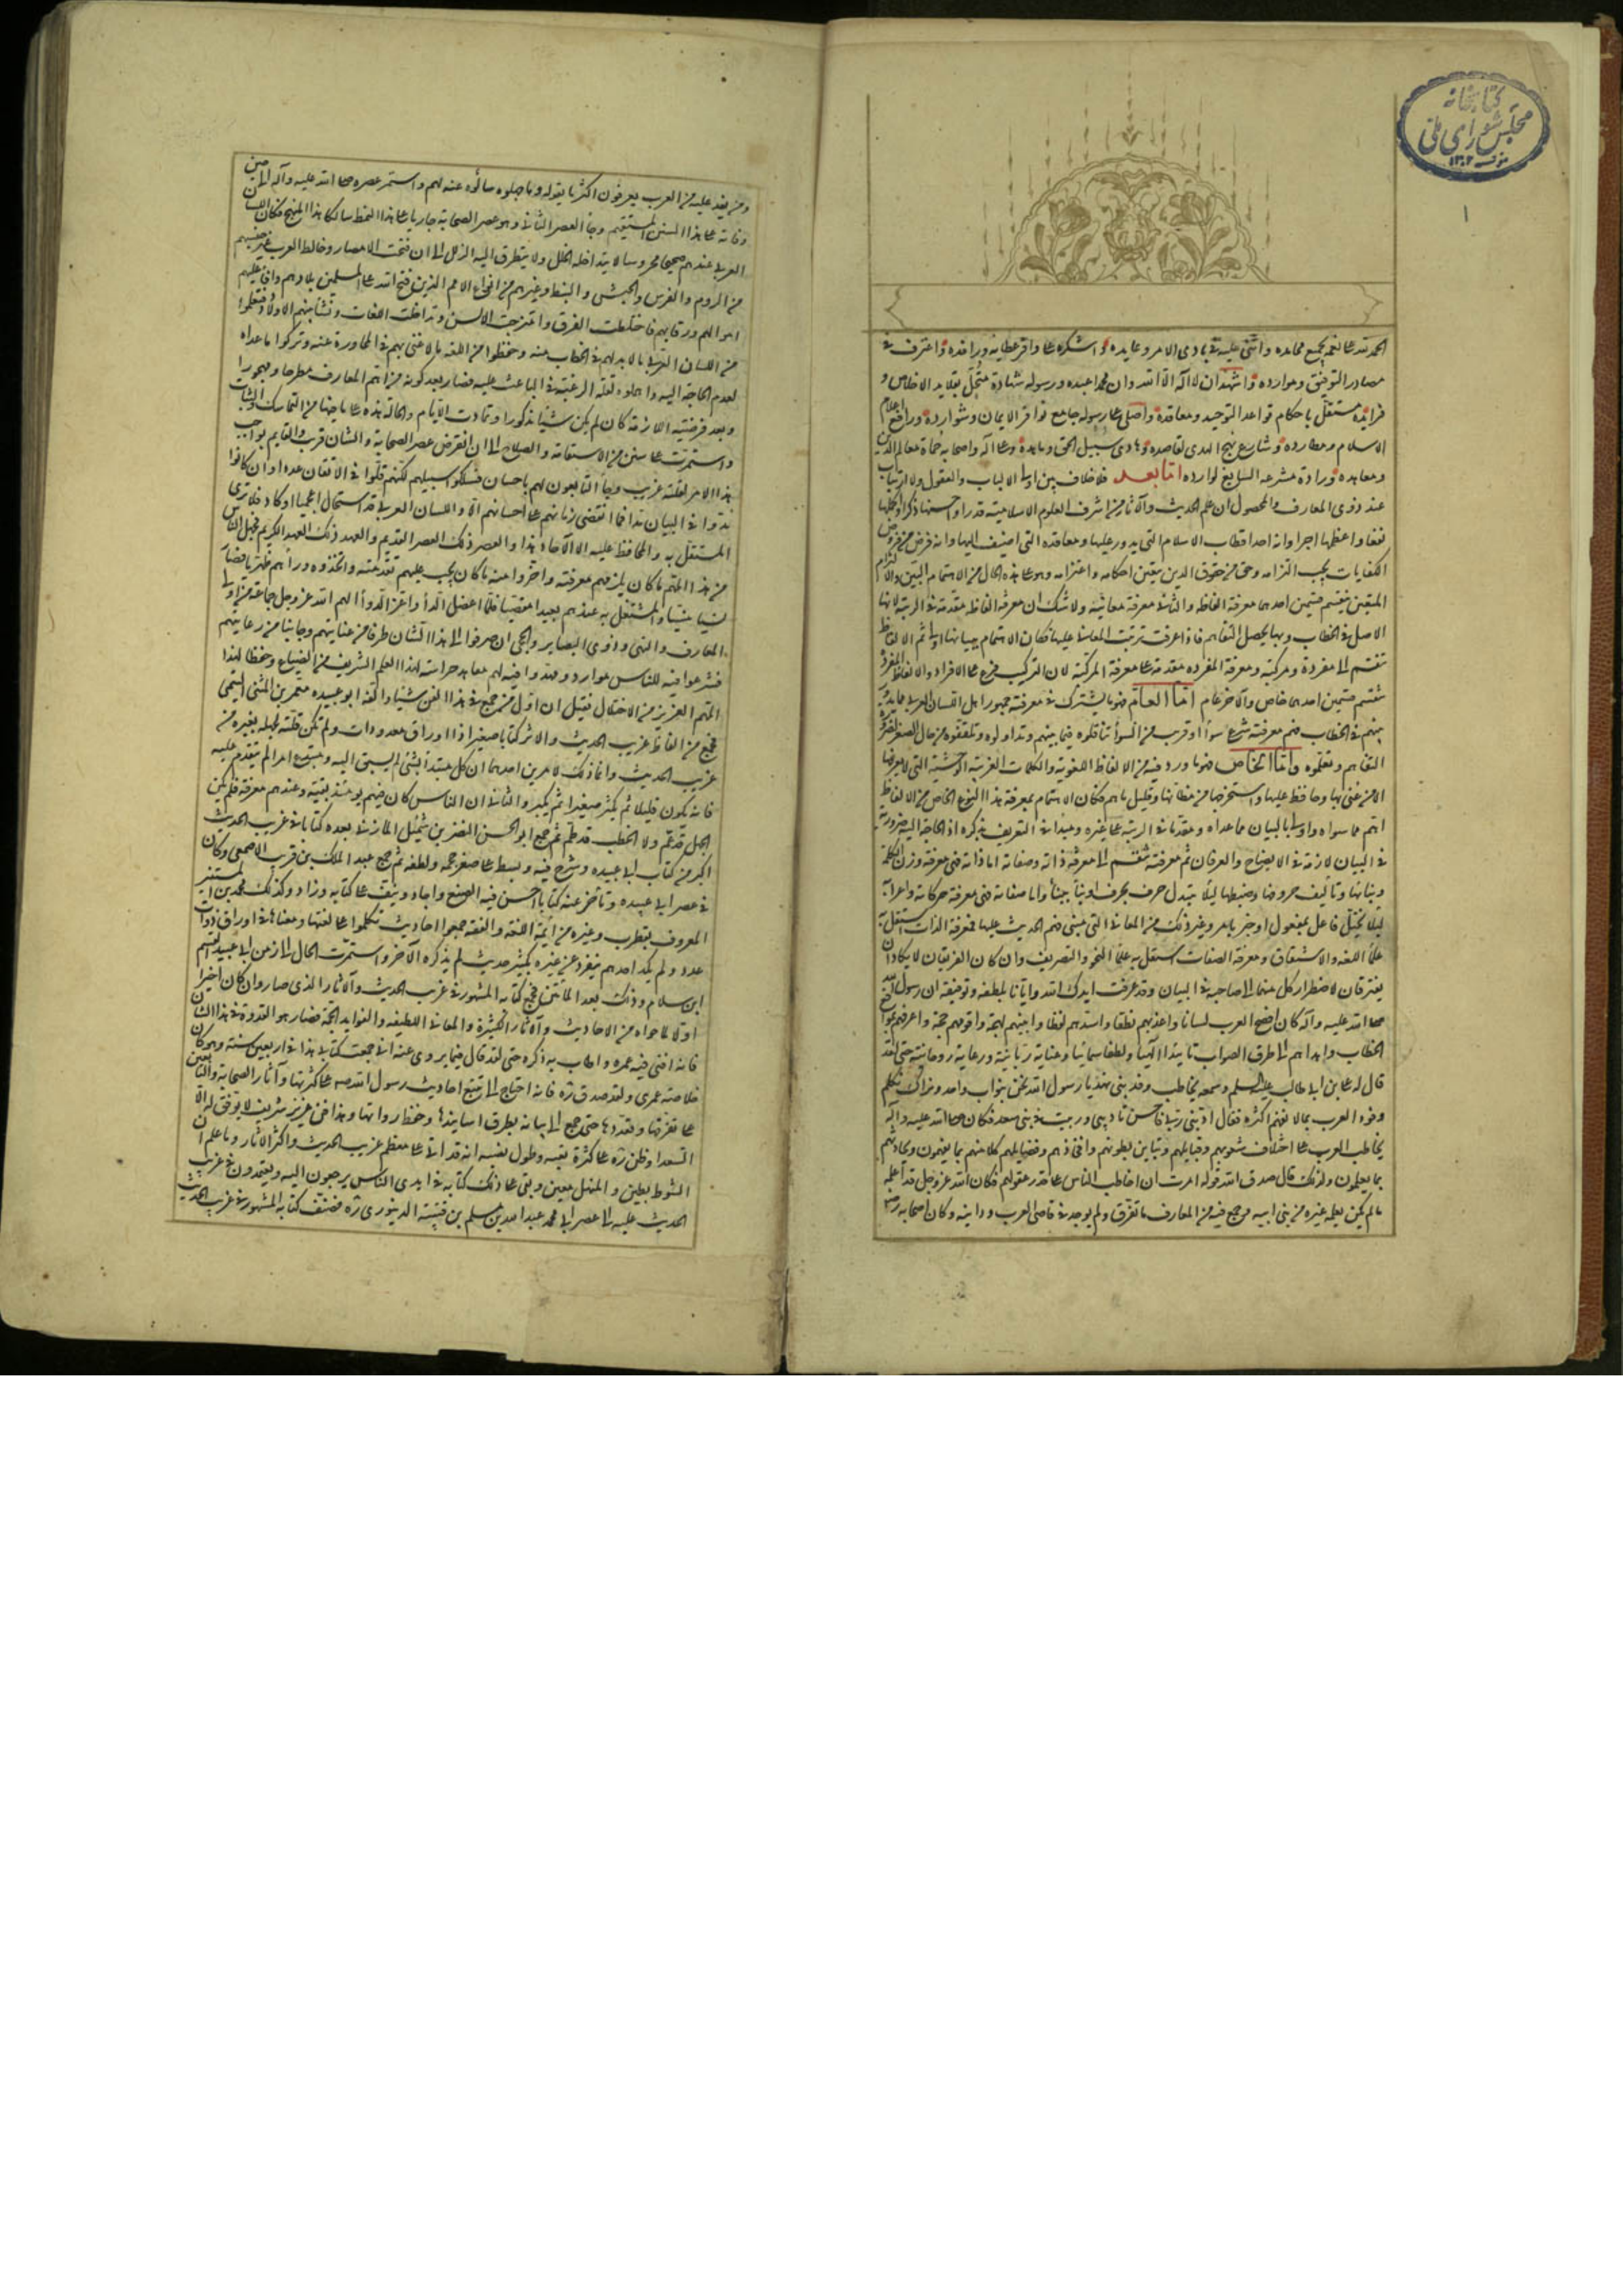 كتابخانه
مجلس شورای ملی
١٣٠٢
١
الحمد لله على نعمه بجميع محامده واثنى عليه فى بادى الامر وعايده واشكره على وافر عطايه ورافده واعترف
مصادر التوفيق وموارده واشهد ان لا اله الا الله وان محمدا عبده ورسوله شهادة متحل بقلايد الاخلاص و
فرايده مستقل باحكام قواعد التوحيد ومعاقده واصلى على رسوله جامع نوافر الايمان وشوارده ورافع اعلام
الاسلام ومطارده وشارع نهج الهدى لقاصده وهادى سبيل الحق وماهده وعلى آله واصحابه حماة معالم الدين
ومعاهده ورادة مشرعه السايغ لوارده اما بعد فلا خلاف بين اولى الالباب والعقول ولا ارتياب
عند ذوى المعارف والمحصول ان علم الحديث والآثار من اشرف العلوم الاسلامية قدرا واحسنها ذكرا واكملها
نفعا واعظمها اجرا وانه احد اقطاب الاسلام التى يدور عليها ومعاقده التى اضيف اليها وانه فرض من فروض
الكفايات يجب التزامه وحق من حقوق الدين يتعين احكامه واعتزامه وهو على هذه الحال من الاهتمام البين والالتزام
المتعين ينقسم قسمين احدهما معرفة الفاظه والثانى معرفة معانيه ولا شك ان معرفة الفاظه مقدمة فى الرتبة لانها
الاصل فى الخطاب وبها يحصل التفاهم فاذا عرفت ترتبت المعانى عليها فكان الاهتمام ببيانها اولى ثم الالفاظ
تنقسم الى مفردة ومركبة ومعرفة المفرده مقدمة على معرفة المركبة لان التركيب فرع على الافراد والالفاظ المفردة
تنقسم قسمين احدهما خاص والآخر عام اما العام فهو ما يشترك فى معرفته جمهور اهل اللسان العربى مما يدور
بينهم فى الخطاب فهم معرفته شرع سواء او قريب من السواء تناقلوه فيما بينهم وتداولوه وتلقفوه من حال الصغر لضرورة
التفاهم وتعلموه واما الخاص فهو ما ورد فيه من الالفاظ اللغوية والكلمات الغريبة الحوشية التى لا يعرفها
الا من عنى بها وحافظ عليها واستخرجها من مظانها وقليل ما هم فكان الاهتمام بمعرفة هذا النوع الخاص من الالفاظ
اهم مما سواه واولى بالبيان مما عداه ومقدما فى الرتبة على غيره ومبدأ فى التعريف بذكره اذ الحاجة اليه ضرورية
فى البيان لازمة فى الايضاح والعرفان ثم معرفته تنقسم الى معرفة ذاته وصفاته اما ذاته فهى معرفة وزن الكلمة
وبنائها وتأليف حروفها وضبطها ليلا يتبدل حرف بحرف او بناء ببناء واما صفاته فهى معرفة حركاته واعرابه
ليلا يختل فاعل بمفعول او خبر بامر وغير ذلك من المعانى التى مبنى فهم الحديث عليها فمعرفة الذات استقل بها
علماء اللغه والاشتقاق ومعرفة الصفات استقل به علماء النحو والتصريف وان كان الفريقان لا يكادان
يفترقان لاضطرار كل منهما الى صاحبه فى البيان وقد عرفت ايدك الله وايانا بلطفه وتوفيقه ان رسول الله
صلى الله عليه وآله كان افصح العرب لسانا واعذبهم نطقا واسدهم لفظا وابينهم لهجة واقومهم حجة واعرفهم بمواقع
الخطاب واهداهم الى طرق الصواب تاييدا الهيا ولطفا سمائيا وعناية ربانية ورعاية روحانية حتى لقد
قال له على بن ابى طالب عليه السلم وسمعه يخاطب وفد بنى نهد يا رسول الله نحن بنو اب واحد ونراك تكلم
وفود العرب بما لا نفهم اكثره فقال ادبنى ربى فاحسن تاديبى وربيت فى بنى سعد فكان صلى الله عليه وآله
يخاطب العرب على اختلاف شعوبهم وقبايلهم وتباين بطونهم وافخاذهم وفصايلهم كلا منهم بما يفهمون ويحادثهم
بما يعلمون ولذلك قال صدق الله قوله امرت ان اخاطب الناس على قدر عقولهم فكان الله عز وجل قد اعلمه
ما لم يكن يعلمه غيره من بنى ابيه وجمع فيه من المعارف ما تفرق ولم يوجد فى قاصى العرب ودانيه وكان اصحابه رض
ومن يفد عليه من العرب يعرفون اكثر ما يقوله وما جهلوه سألوه عنه لهم واستمر عصره صلى الله عليه وآله الى حين
وفاته على هذا السنن المستقيم وجاء العصر الثانى وهو عصر الصحابة جاريا على هذا النمط سالكا هذا المنهج فكان اللسان
العربى عندهم صحيحا محروسا لا يتداخله الخلل ولا يتطرق اليه الزلل الى ان فتحت الامصار وخالط العرب غير جنسهم
من الروم والفرس والحبش والنبط وغيرهم من انواع الامم الذين فتح الله على المسلمين بلادهم وافاء عليهم
اموالهم ورقابهم فاختلطت الفرق وامتزجت الالسن وتداخلت اللغات ونشأ بينهم الاولاد فتعلموا
من اللسان العربى ما لا بد لهم فى الخطاب منه وحفظوا من اللغه ما لا غنى لهم فى المحاورة عنه وتركوا ما عداه
لعدم الحاجة اليه واهملوه لقلة الرغبة فى الباعث عليه فصار بعد كونه من اهم المعارف مطرحا مهجورا
وبعد فرضيته اللازمة كان لم يكن شيئا مذكورا وتمادت الايام والحالة هذه على ما فيها من التماسك والثبات
واستمرت على سنن من الاستقامة والصلاح الى ان انقرض عصر الصحابة والشان قريب والقايم بواجب
هذا الامر لقلته غريب وجاء التابعون لهم باحسان فسلكوا سبيلهم لكنهم قلوا فى الاتقان عددا وان كانوا
مدوا فى البيان يدا فما انقضى زمانهم على احسانهم الا واللسان العربى قد استحال اعجميا او كاد فلا ترى
المستقل به والمحافظ عليه الا الآحاد هذا والعصر ذلك العصر القديم والعهد ذلك العهد الكريم فجهل الناس
من هذا المهم ما كان يلزمهم معرفته واخروا منه ما كان يجب عليهم تقدمته واتخذوه وراءهم ظهريا فصار
نسيا منسيا والمشتغل به عندهم بعيدا مقصيا فلما اعضل الداء واعز الدواء الهم الله عز وجل جماعة من اولى
المعارف والنهى وذوى البصاير والحجى ان صرفوا الى هذا الشان طرفا من عنايتهم وجانبا من رعايتهم
فشرعوا فيه للناس موارد ومهدوا فيه لهم معاهد حراسة لهذا العلم الشريف من الضياع وحفظا لهذا
المهم العزيز من الاختلال فقيل ان اول من جمع فى هذا الفن شيئا والفه ابو عبيده معمر بن المثنى التيمى
فجمع من الفاظ غريب الحديث والاثر كتابا صغيرا ذا اوراق معدودات ولم تكن قلته لجهله بغيره من
غريب الحديث وانما ذلك لامرين احدهما ان كل مبتدأ بشئ لم يسبق اليه ومبتدع امرا لم يتقدم عليه
فانه يكون قليلا ثم يكثر وصغيرا ثم يكبر والثانى ان الناس كان فيهم يومئذ بقية وعندهم معرفة فلم يكن
الجهل قد عم ولا الخطب قد طم ثم جمع ابو الحسن النضر بن شميل المازنى بعده كتابا فى غريب الحديث
اكبر من كتاب ابى عبيده وشرح فيه وبسط على صغر حجمه ولطفه ثم جمع عبد الملك بن قريب الاصمعى وكان
فى عصر ابى عبيده وتأخر عنه كتابا احسن فيه الصنع واجاد ونيف على كتابه وزاد وكذلك محمد بن المستنير
المعروف بقطرب وغيره من ائمة اللغة والفقه جمعوا احاديث تكلموا على لغتها ومعناها فى اوراق ذوات
عدد ولم يكد احدهم ينفرد عن غيره بكثير حديث لم يذكره الآخر واستمرت الحال الى زمن ابى عبيد القسم
ابن سلام وذلك بعد المأتين فجمع كتابه المشهور فى غريب الحديث والآثار الذى صار وان كان اخيرا
اولا لما حواه من الاحاديث والآثار الكثيرة والمعانى اللطيفه والفوايد الجمة فصار هو القدوة فى هذا الشان
فانه افنى فيه عمره واطاب به ذكره حتى لقد قال فيما يروى عنه انى جمعت كتابى هذا فى اربعين سنة وهو كان
خلاصة عمرى ولقد صدق ره فانه احتاج الى تتبع احاديث رسول الله ص على كثرتها وآثار الصحابة والتابعين
على تفرقها وتعددها حتى جمع الى بيانه بطرق اسانيدها وحفظ رواتها وهذا فن عزيز شريف لا يوفق له الا
السعداء وظن ره على كثرة تعبه وطول نصبه انه قد اتى على معظم غريب الحديث واكثر الآثار وما علم ان
الشوط بطين والمنهل معين وبقى على ذلك كتابه فى ايدى الناس يرجعون اليه ويعتمدون فى غريب
الحديث عليه الى عصر ابى محمد عبد الله بن مسلم بن قتيبة الدينورى ره فصنف كتابه المشهور فى غريب الحديث